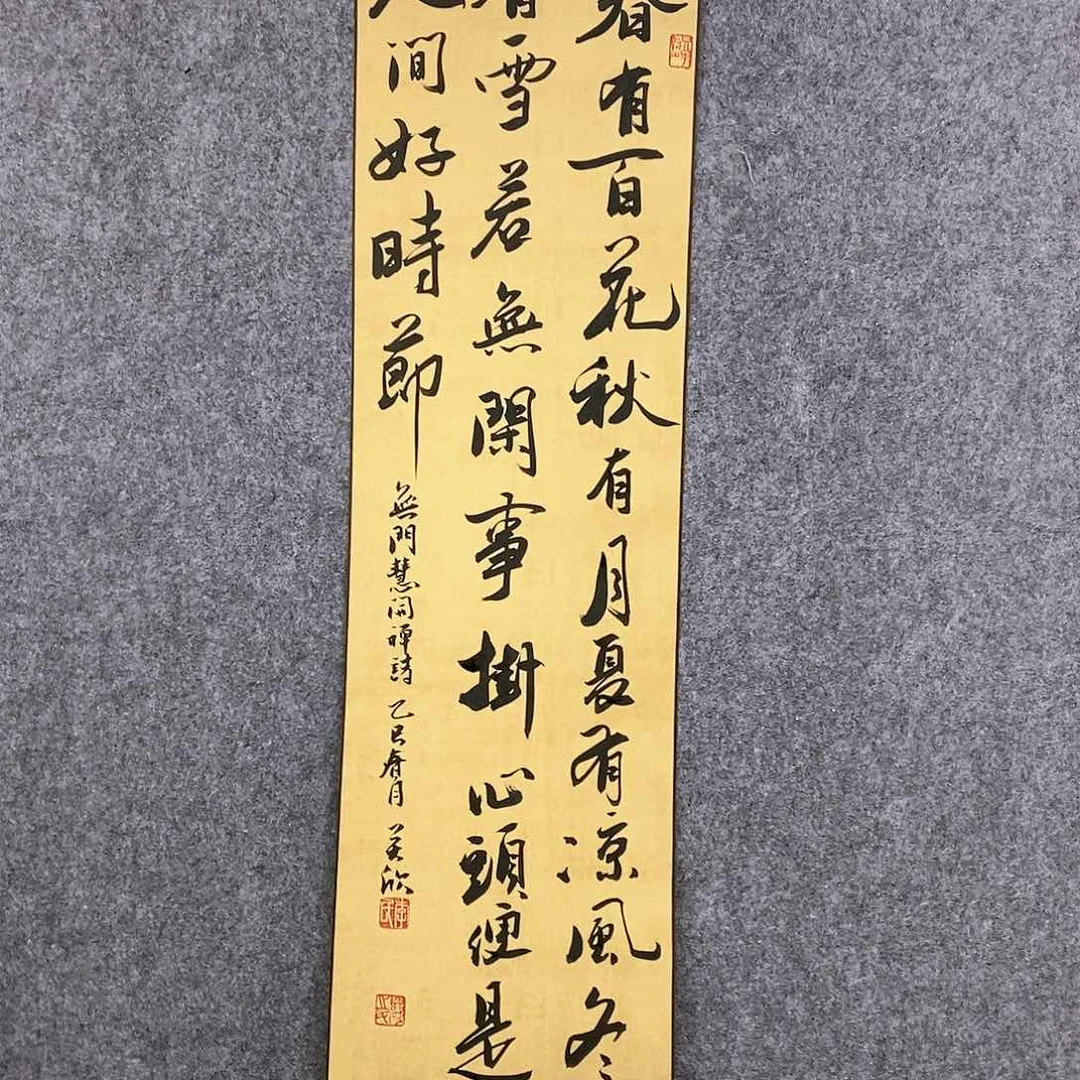 春有百花秋有月夏有涼風冬
有雪若無閑事掛心頭便是
人間好時節
無門慧開禪詩 乙巳春月 美欣